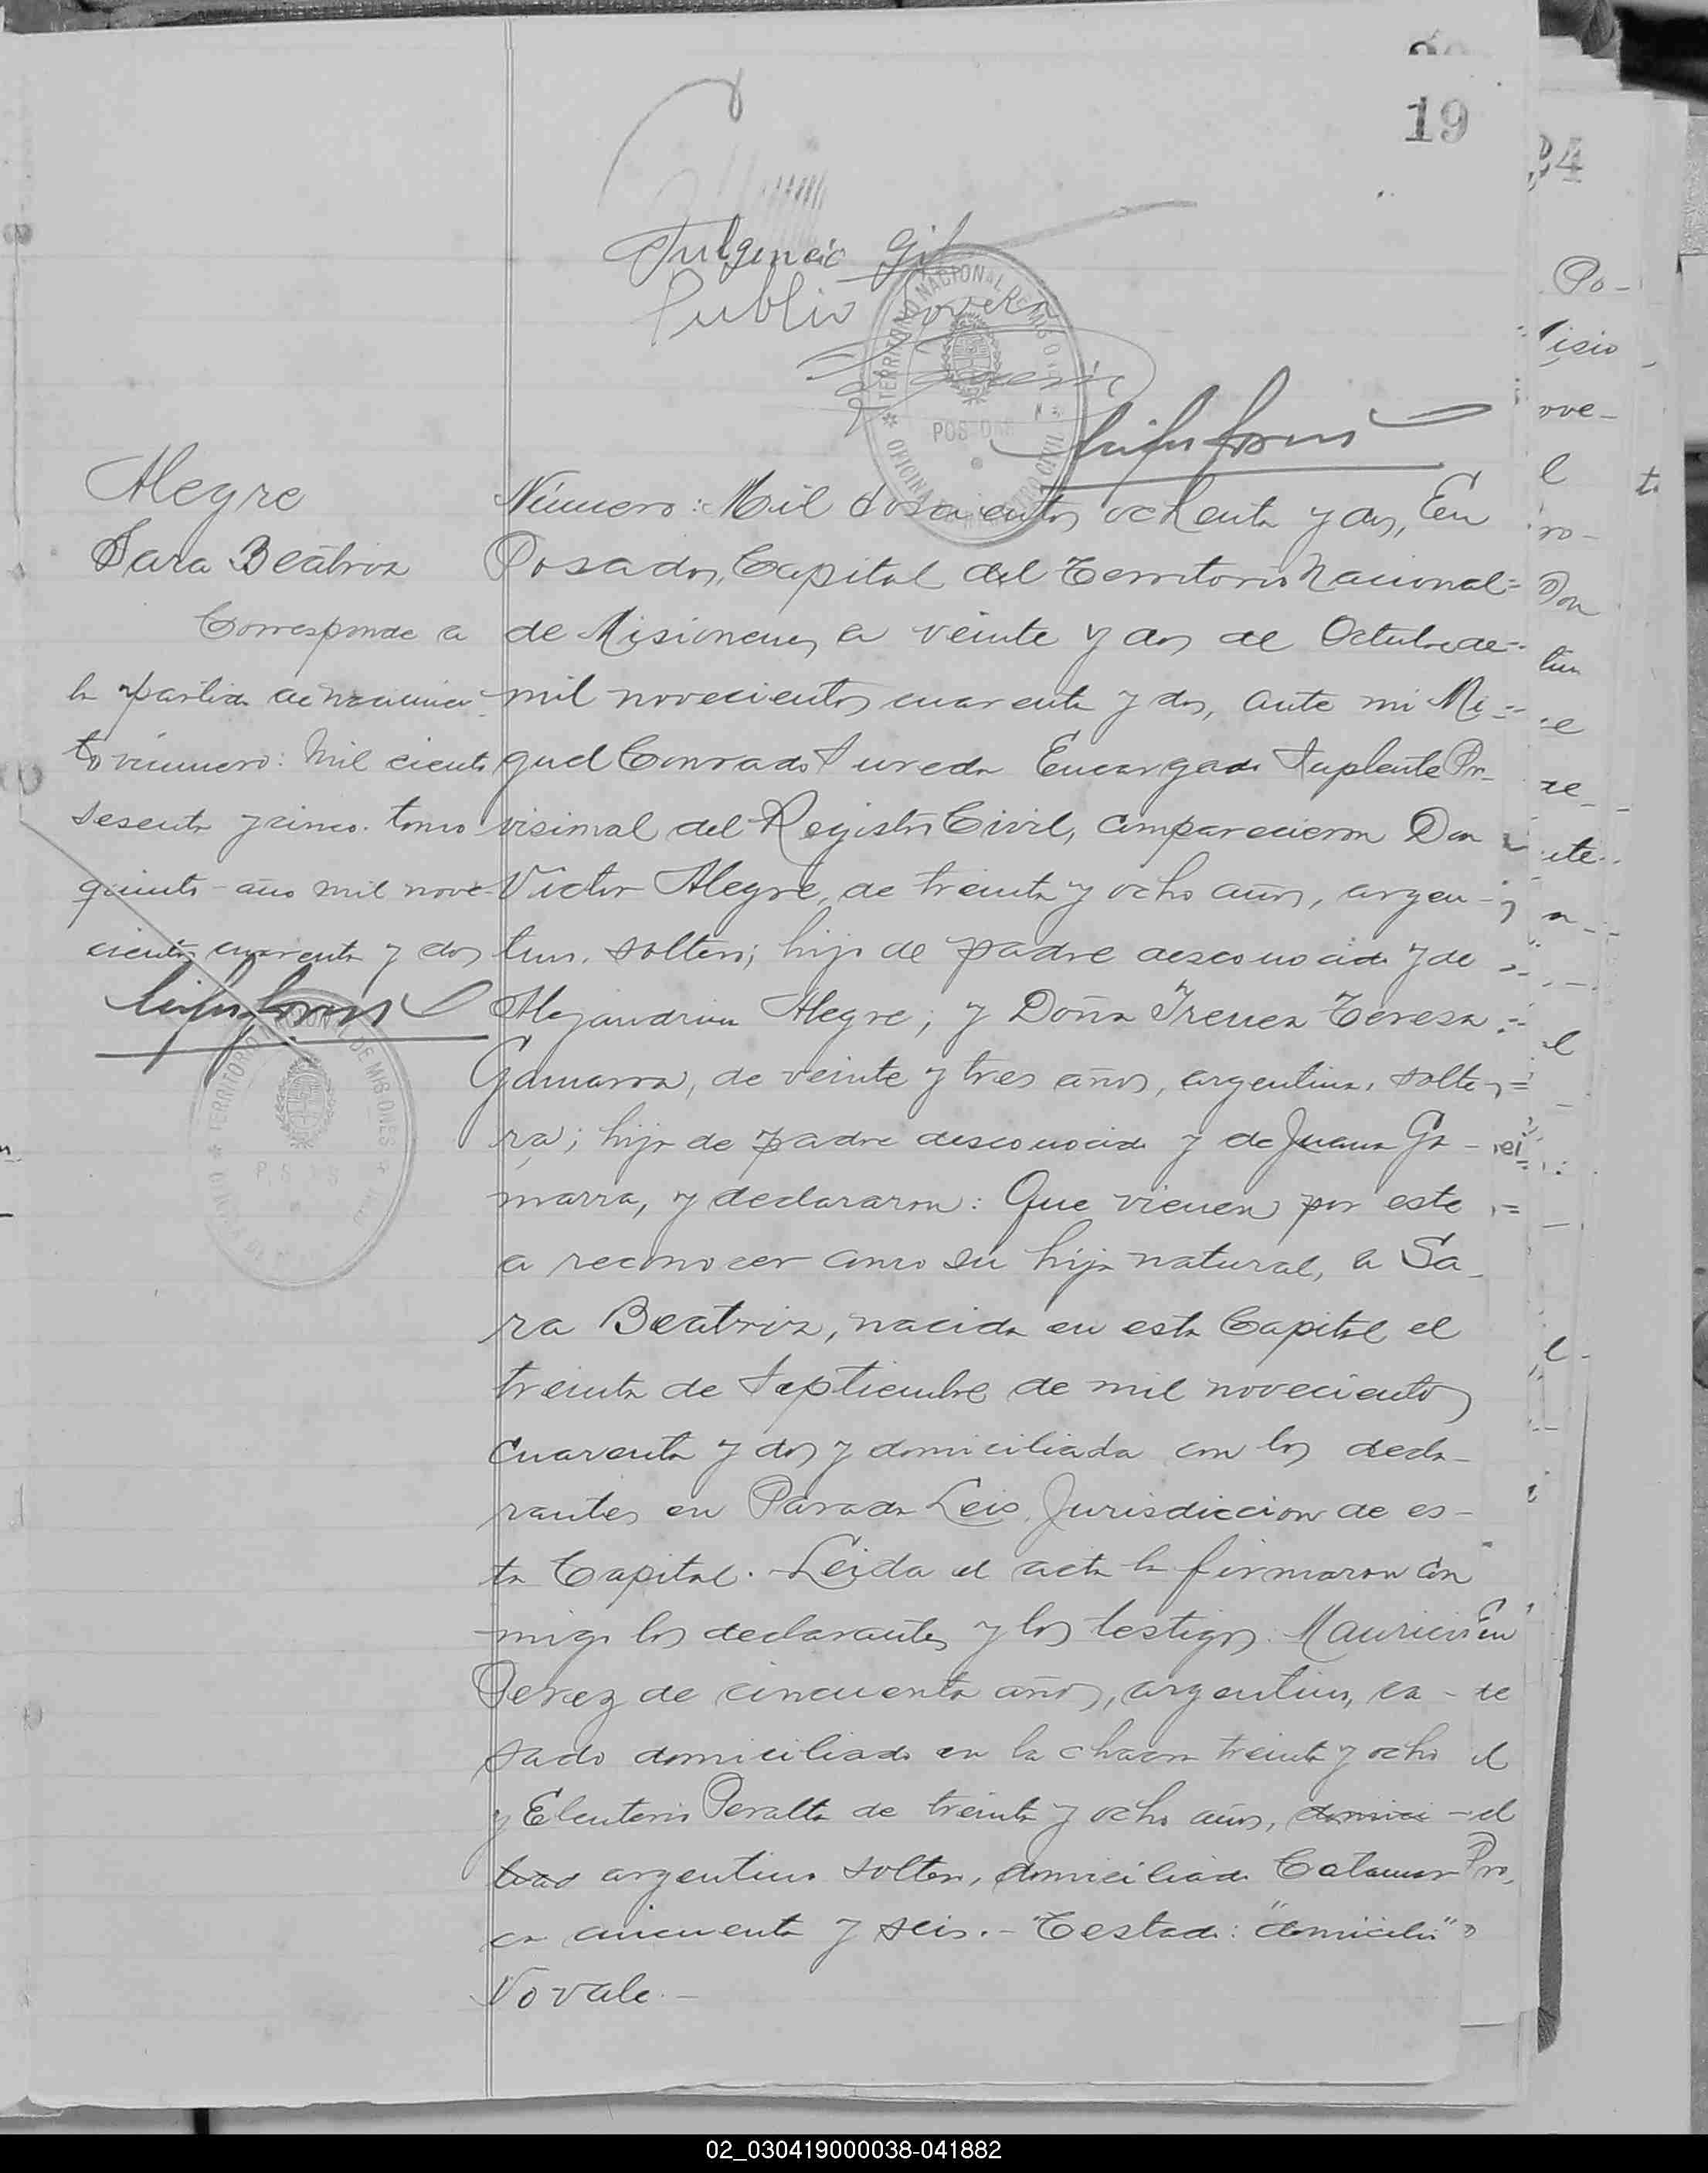 19
24
Fulgencio Gil
Publio
Alegre
Sara Beatriz
Corresponde a
la partida de nacimien-
to número: Mil ciento
sesenta y cinco. tomo
quinto - año mil nove-
cientos cuarenta y dos
TERRITORIO NACIONAL DE MISIONES
Número: Mil doscientos ochenta y dos, En
Posadas, Capital del Territorio Nacional
de Misiones, a veinte y dos de Octubre de
mil novecientos cuarenta y dos, ante mi Mi-
guel Conrado Sureda Encargado Suplente Pro-
visional del Registro Civil, comparecieron Don
Victor Alegre, de treinta y ocho años, argen-
tino, soltero; hijo de padre desconocido y de
Alejandrina Alegre; y Doña Irenea Teresa
Gamarra, de veinte y tres años, argentina, solte-
ra; hija de padre desconocido y de Juana Ga-
marra, y declararon: Que vienen por este
a reconocer como su hija natural, a Sa-
ra Beatriz, nacida en esta Capital el
treinta de Septiembre de mil novecientos
cuarenta y dos y domiciliada con los decla-
rantes en Parada Leis, Jurisdiccion de es-
ta Capital. - Leida el acta la firmaron con
migo los declarantes y los testigos: Mauricio
Perez de cincuenta años, argentino, ca-
sado domiciliado en la chacra treinta y ocho
y Eleuterio Peralta de treinta y ocho años, domici-
liado argentino soltero, domiciliado Catamar-
ca cincuenta y seis. - Testado: "domicilio"
No vale. -
02_030419000038-041882